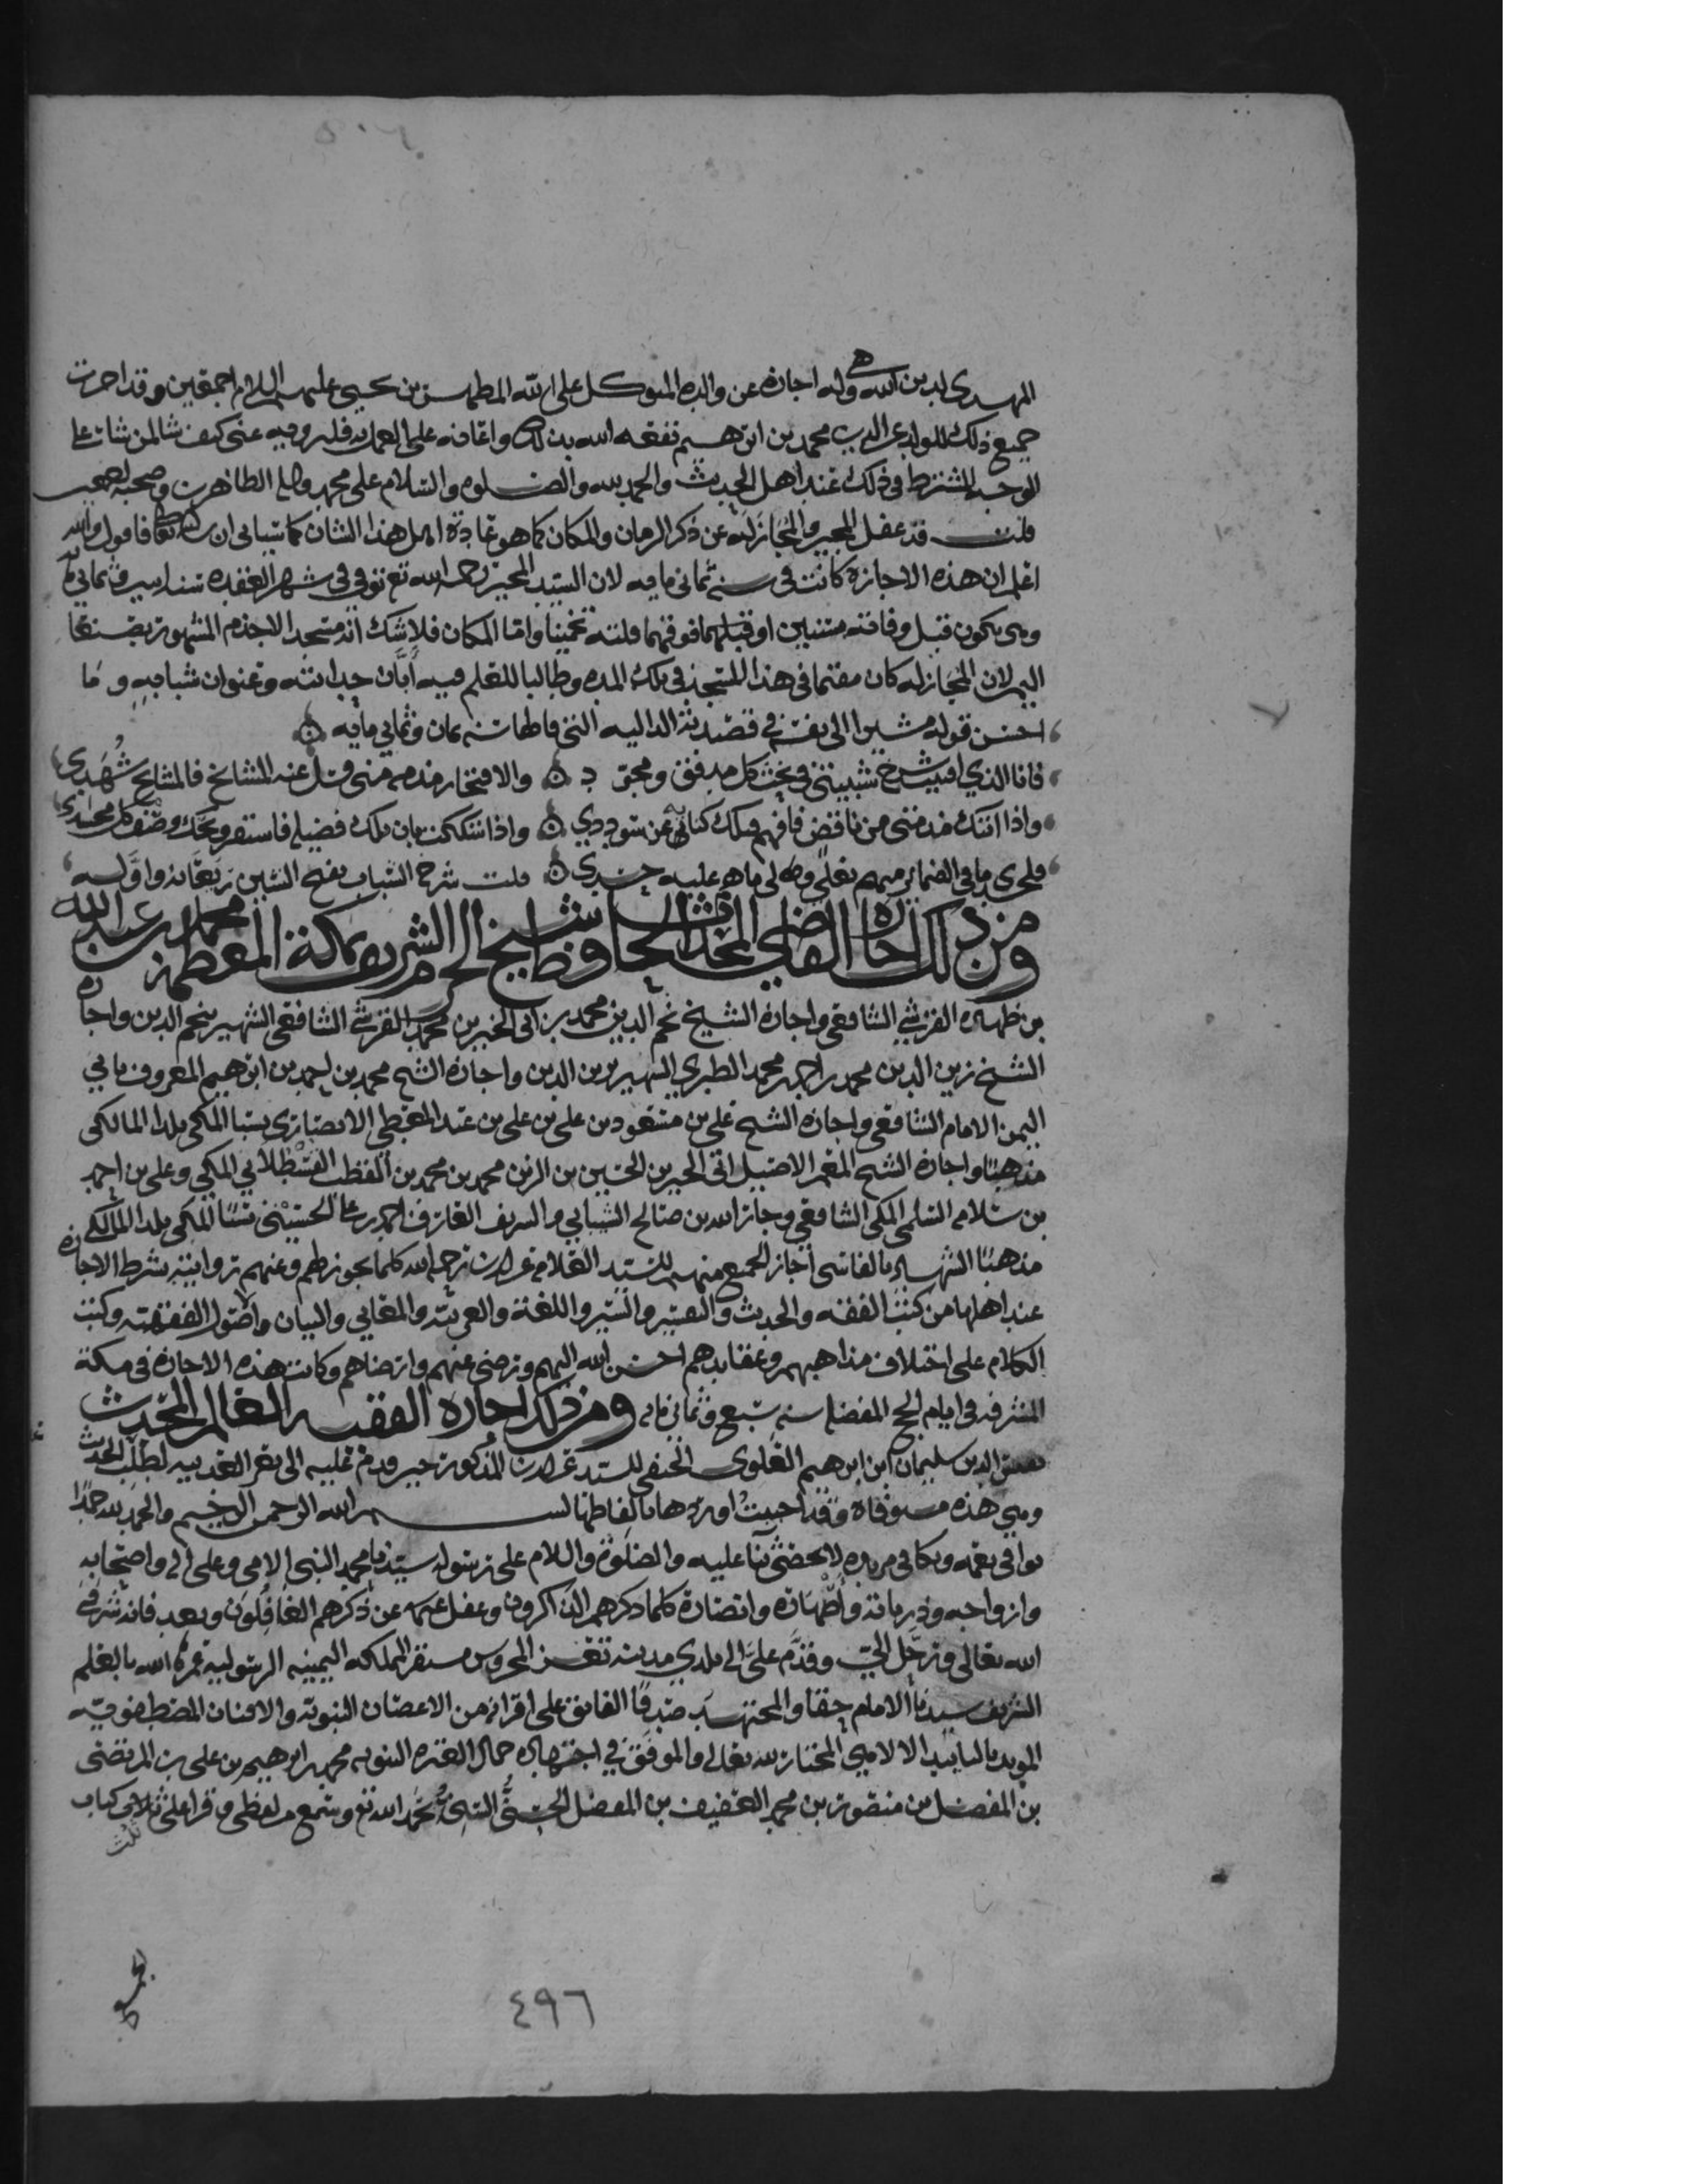 المهدي لدين الله وله اجازه عن والده المتوكل على الله المطهر بن يحيى عليهم السلام اجمعين وقد اجزت
جميع ذلك للولد عز الدين محمد بن ابرهيم نفعه الله بذلك واعانه على العمل به فليروه عني كيف شا لمن شا على
الوجه المشترط في ذلك عند اهل الحديث والحمد لله والصلوه والسلام على محمد واله الطاهرين وصحبه
قلت قد غفل المجيز والمجاز له عن ذكر الزمان والمكان كما هو عادة اهل هذا الشان كما سياتي ان شا الله تعالى فاقول والله
اعلم ان هذه الاجازه كانت في سنة ثماني مايه لان السيد المجيز رحمه الله تع توفي في شهر القعده سنه اثنين وثماني مايه
وهي تكون قبل وفاته بسنتين او قبلهما فوقهما قلته تخمينا واما المكان فلا شك انه مسجد الاجذم المشهور بصنعا
اليمن لان المجاز له كان مقيما في هذا المسجد في تلك المده وطالبا للعلم فيه ابان حداثته وعنوان شبابه وما
احسن قوله مشيرا الى نفسه في قصيدته الداليه التي قالها سنه ثمان وثماني مايه
فانا الذي افنيت شرخ شبيبتي في بحث كل مدقق ومجود والافتخار مذمه مني فسل عني المشايخ فالمشايخ شهدي
واذا اتتك مذمتي من ناقص فافهم فتلك كناية عن سوددي واذا شككت بان تلك فضيلة فاستقر ويحك وصف كل محسد
قلت شرح الشباب بفتح الشين ريعانه واوله
ومن ذلك اجازة القاضي المحدث الحافظ شيخ الحرم الشريف بمكة المعظمة محمد بن عبد الله
بن ظهيره القرشي الشافعي واجازة الشيخ نجم الدين محمد بن ابي الخير بن محمد القرشي الشافعي الشهير بنجم الدين واجازه
الشيخ زين الدين محمد بن احمد بن محمد الطبري الشهير بزين الدين واجازة الشيخ محمد بن احمد بن ابرهيم المعروف بابي
اليمن الامام الشافعي واجازة الشيخ علي بن مسعود بن علي بن علي بن عبد المعطي الانصاري نسبا المكي بلدا المالكي
مذهبا واجازة الشيخ المعمر الاصيل ابي الخير بن الحسين بن الزين محمد بن محمد بن القطب القسطلاني المكي وعلي بن احمد
بن سلامه السلمي المكي الشافعي وجار الله بن صالح الشيباني والشريف العارف احمد بن علي الحسيني نسبا المكي بلدا المالكي
مذهبا الشهير بالفاسي اجاز الجميع منهم للسيد العلامه عز الدين رحمه الله كلما يجوز لهم وعنهم روايته بشرط الاجازه
عند اهلها من كتب الفقه والحديث والتفسير والسير واللغة والعربيه والمعاني والبيان واصول الفقه وكتب
الكلام على اختلاف مذاهبهم وعقايدهم احسن الله اليهم ورضي عنهم وارضاهم وكانت هذه الاجازة في مكة
المشرفه في ايام الحج المفضله سنه سبع وثماني مايه ومن ذلك اجازه الفقيه العالم المحدث
نفيس الدين سليمان ابن ابرهيم العلوي الحنفي للسيد عز الدين المذكور حين قدم عليه الى تعز العدنيه لطلب الحديث
وهي هذه مستوفاة وقد احببت اوردها بالفاظها بسم الله الرحمن الرحيم والحمد لله حمدا
يوافي نعمه ويكافي مزيده لا نحصي ثنا عليه والصلوة والسلام على رسوله سيدنا محمد النبي الامي وعلى اله واصحابه
وازواجه وذرياته واصهاره وانصارة كلما ذكرهم الذاكرون وغفل عنهم عن ذكرهم الغافلون وبعد فانه شرفني
الله تعالى ورحل الي وقدم علي الى بلدي مدينة تعز المحروس مستقر المملكه اليمينيه الرسوليه عمرها الله بالعلم
الشريف سيدنا الامام حقا والمجتهد صدقا الفايق على اقرانه من الاغصان النبويه والافنان المصطفويه
المويد بالتاييد الالهي المختار لله تعالى والموفق في اجتهاده جمال العتره النبويه محمد بن ابرهيم بن علي بن المرتضى
بن المفضل بن منصور بن محمد العفيف بن المفضل الحسني السني بحمد الله تع وسمع من لفظي وقرا علي ثلاثي كتاب
ثلث
٤٩٦